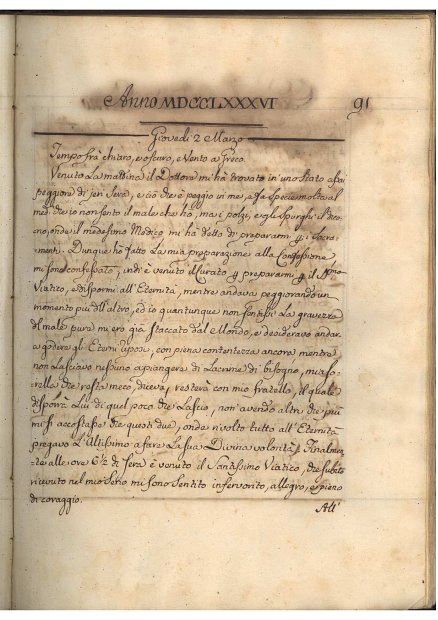 Anno MDCCLXXXVI 91
Giovedi 2 Marzo
Tempo frà chiaro, e oscuro, e Vento a Greco.
Venuto La mattina il Dottore mi hà trovato in uno stato assai
peggiore di jeri Sera, e ciò che è peggio in me, e fà specie molta al
medico io non sento il male che hò, ma i polzi, e gli spurghi il dico-
no, onde il medesimo Medico mi hà detto di prepararmi p i Sacra-
menti. Dunque hò fatto La mia preparazione alla Confessione
mi sono confessato, indi è venuto il Curato p prepararmi p il
Viatico, e dispormi all'Eternità, mentre andava peggiorando un
momento più dell'altro, ed io quantunque non sentissi La gravezza
del male pure mi ero già staccato dal Mondo, e desideravo andar
a godere gli Eterni con piena contentezza ancora mentre
non Lasciavo nessuno a piangere di Lacrime di bisogno, mia so-
rella che resta meco, diceva, resterà con mio fratello, il quale
disporrà Lui di quel poco che Lascio, non avendo altri che più
mi si accostasse che questi due, onde rivolto tutto all'Eternità
pregavo L'Altissimo a fare La sua Divina volontà, Finalmen-
te alle ore 6½ di Sera è venuto il Santissimo Viatico, che subito
ricevuto nel mio Seno mi sono Sentito infervorito, allegro, e pieno
di coraggio.
All'